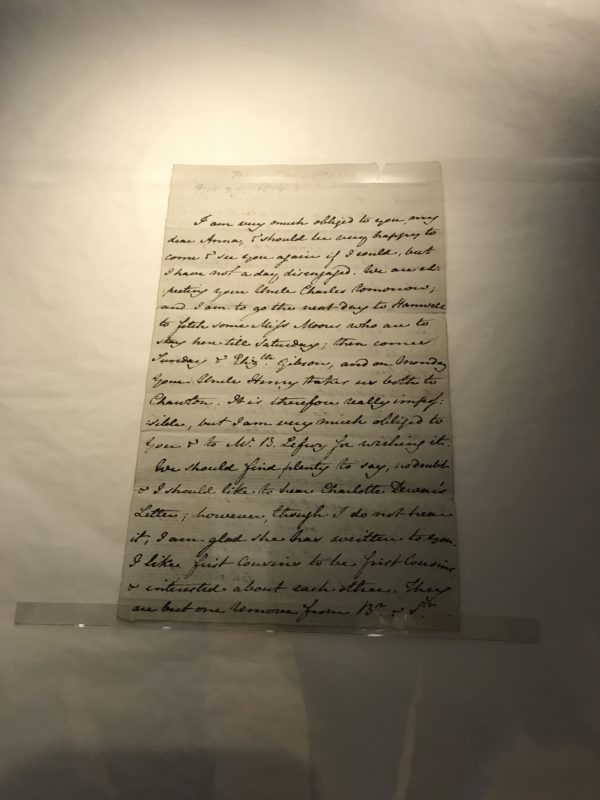 I am very much obliged to you, my
dear Anna, & should be very happy to
come & see you again if I could, but
I have not a day disengaged. We are ex-
:pecting your Uncle Charles tomorrow;
and I am to go the next day to Hanwell
to fetch some Miss Moores who are to
stay here till Saturday; then comes
Sunday & Eliz:th Gibson, and on Monday
Your Uncle Henry takes us both to
Chawton. It is therefore really impos:
:sible, but I am very much obliged to
You & to Mr. B. Lefroy for wishing it.
We should find plenty to say, no doubt
& I should like to hear Charlotte Dewar's
Letter; however, though I do not hear
it, I am glad she has written to you.
I like first Cousins to be first Cousins,
& interested about each other. They
are but one remove from Br. & Sr.